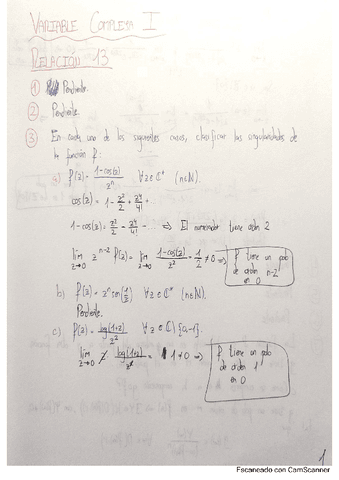 VARIABLE COMPLEJA I
RELACIÓN 13
① Pendiente.
② Pendiente.
③ En cada uno de los siguientes casos, clasificar las singularidades de
la función f:
a) f(z) = (1-cos(z))/zⁿ ∀z∈ℂ* (n∈ℕ).
cos(z) = 1 - z²/2 + z⁴/4! + ...
1-cos(z) = z²/2 - z⁴/4! ... ⇒ El numerador tiene orden 2
lim z→0 zⁿ⁻² f(z) = lim z→0 (1-cos(z))/z² = 1/2 ≠ 0 ⇒ f tiene un polo de orden n-2 en 0
b) f(z) = zⁿ sen(1/z) ∀z∈ℂ* (n∈ℕ).
Pendiente.
c) f(z) = log(1+z)/z² ∀z∈ℂ\{0,-1}.
lim z→0 z log(1+z)/z² = 1 ≠ 0 ⇒ f tiene un polo de orden 1 en 0
1
Escaneado con CamScanner